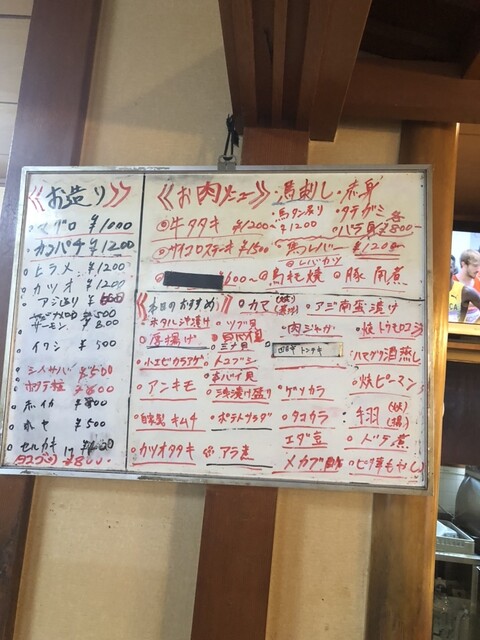 《お造り》
マグロ ¥1000
カンパチ ¥1200
ヒラメ ¥1200
カツオ ¥1200
アジ造り
¥500
サーモン ¥800
イワシ ¥500
シメサバ ¥500
ホタテ
赤イカ ¥800
ホヤ ¥500
セルガキ 1ケ
タコブツ ¥800
《お肉メニュー》
牛タタキ ¥1200
サイコロステーキ ¥1500
¥600〜
馬刺し
赤身
馬タン造り ¥1200
タテガミ
バラ 各¥800
馬レバー ¥1200
レバカツ
馬もも焼
豚角煮
本日のおすすめ
ホタルイカ沖漬け
唐揚げ
小エビカラアゲ
アンキモ
自家製キムチ
カツオタタキ
ツブ貝
白バイ貝
ミナ貝
トコブシ
赤バイ貝
浅漬け盛り
ポテトサラダ
アラ煮
カマ (焼) (煮付)
肉ジャガ
トンテキ
ゲソカラ
タコカラ
エダ豆
メカブ酢
アジ南蛮漬け
焼トウモロコシ
ハマグリ酒蒸し
焼ピーマン
手羽 (焼) (揚)
ドテ煮
ピリ辛もやし